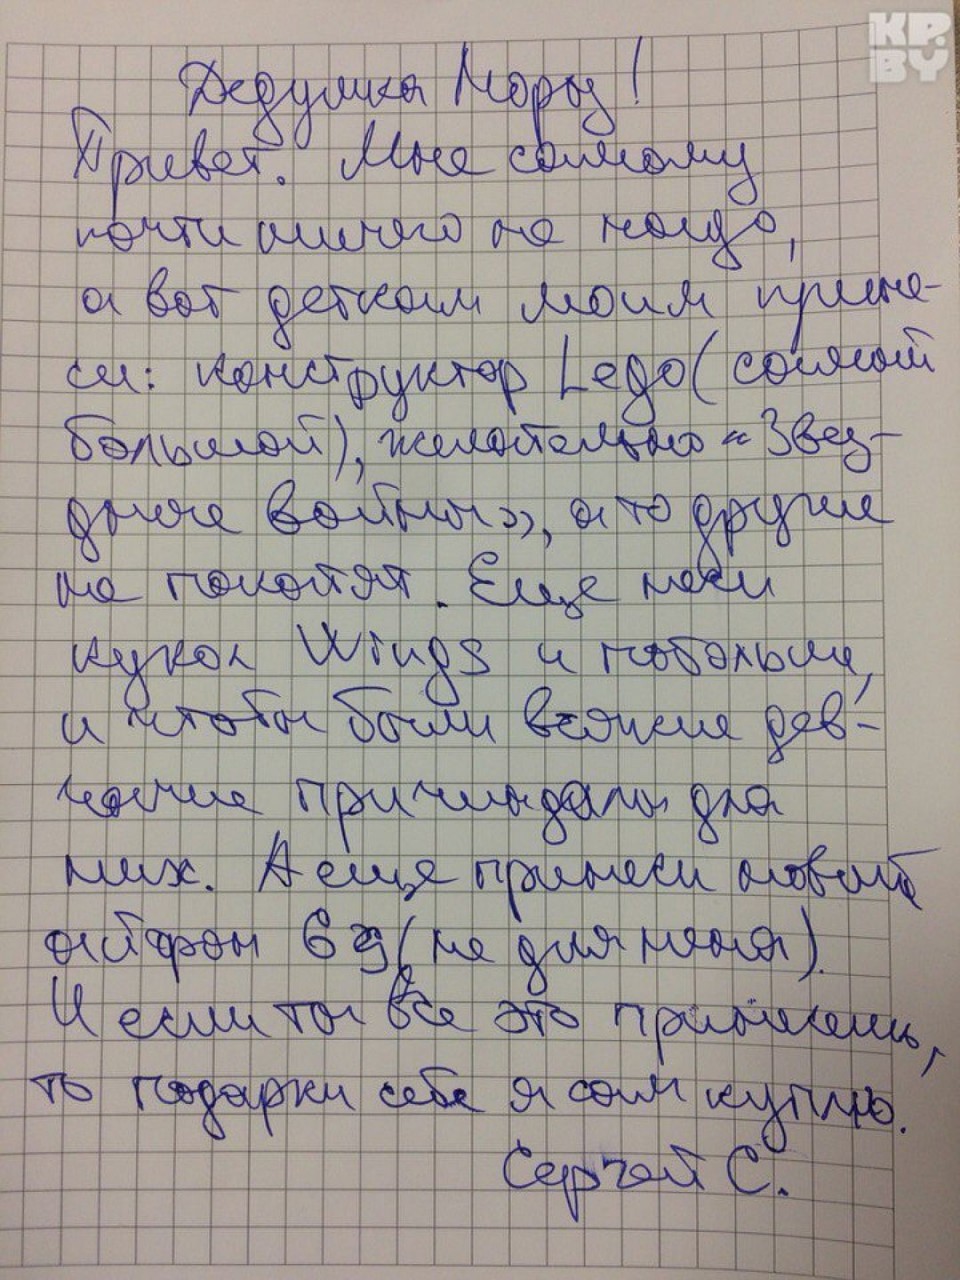 КР.
BY
Дедушка Мороз!
Привет. Мне самому
почти ничего не надо,
а вот деткам моим прине-
си: конструктор Lego (самый
большой), желательно «Звез-
дные войны», а то другие
не покатят. Еще неси
кукол Wings и побольше,
и чтобы были всякие дев-
чачие причиндалы для
них. А еще принеси новый
айфон 6 (не для меня).
И если ты все это принесешь,
то подарки себе я сам куплю.
Сергей С.